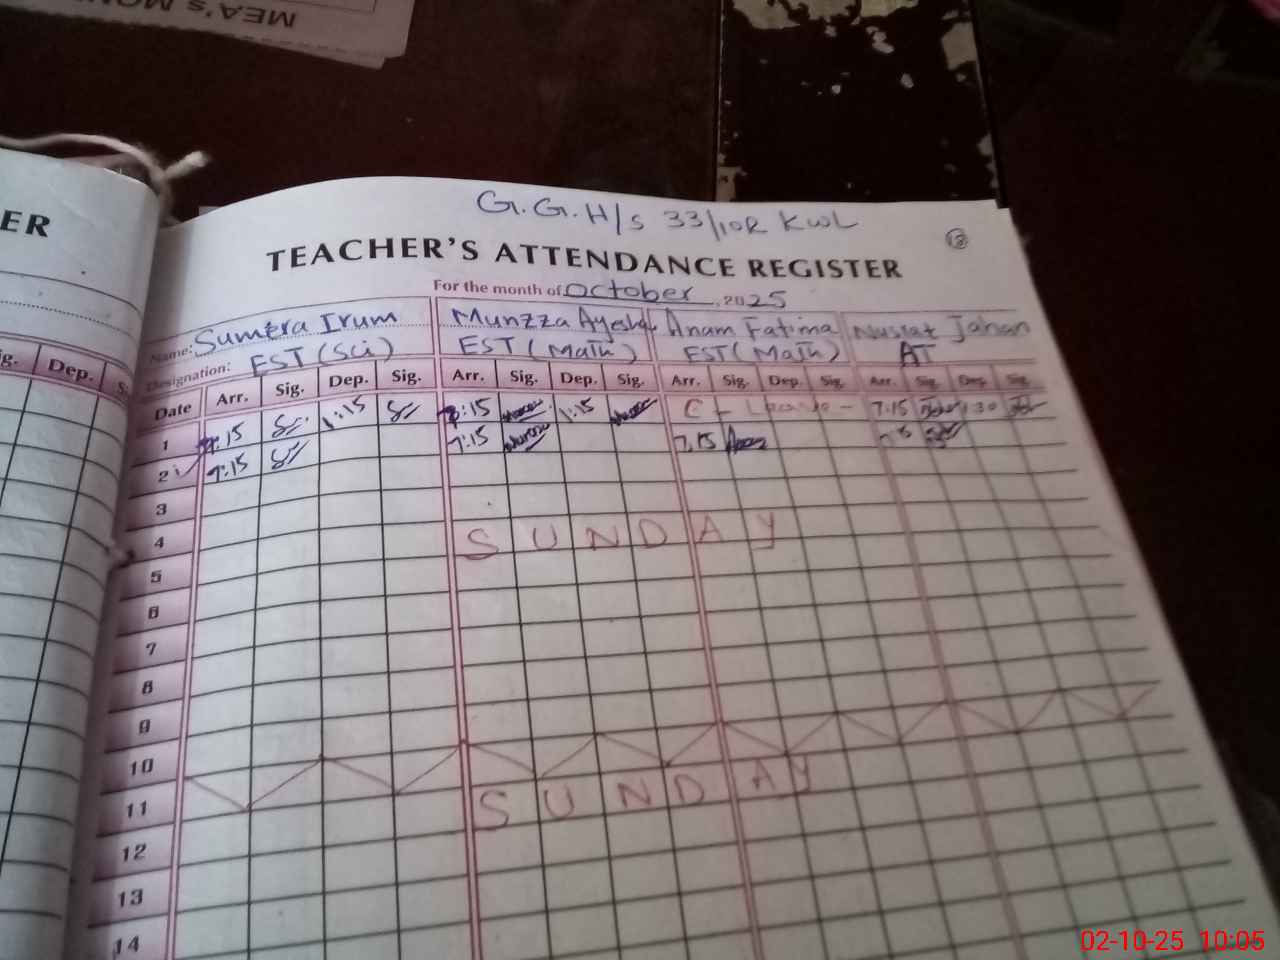 MEA's MON
ER
G.G.H/S 33/10R KWL
18
TEACHER'S ATTENDANCE REGISTER
For the month of October, 2025
Name: Sumera Irum Munzza Ayesha Anam Fatima Nusrat Jahan
Designation: EST (Sci) EST (Math) EST (Math) AT
g. Dep. S
Date Arr. Sig. Dep. Sig. Arr. Sig. Dep. Sig. Arr. Sig. Dep. Sig. Arr. Sig. Dep. Sig.
1 7:15 1:15 7:15 1:15 C - Leave - 7:15 1:30
2 7:15 7:15 7:15
3
4 SUNDAY
5
6
7
8
9
10
11 SUNDAY
12
13
14
02-10-25 10:05